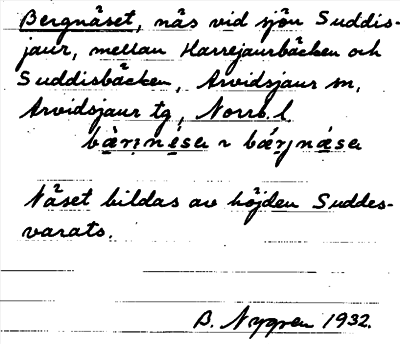 Bergnäset, näs vid sjön Suddis-
jaur, mellan Harrejaurbäcken och
Suddisbäcken, Arvidsjaur sn,
Arvidsjaur tg, Norrb. l.
Näset bildas av höjden Suddes-
varats.
B. Nygren 1932.